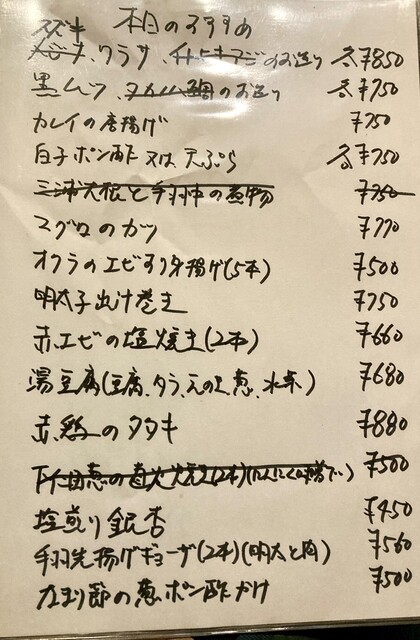 本日のおすすめ
スズキ
メジナ、ワラサ、のお造り 各¥850
黒ムツ、鯛のお造り 各¥750
カレイの唐揚げ ¥750
白子ポン酢 又は 天ぷら 各¥750
三浦大根と手羽中の煮物 ¥750
マグロのカツ ¥770
オクラのエビすり身揚げ(5本) ¥500
明太子出汁巻き ¥750
赤エビの塩焼き(2本) ¥660
湯豆腐(豆腐、タラ、えのき、葱、水菜) ¥680
赤鶏のタタキ ¥880
下仁田葱の直火焼き(2本)(にんにく味噌で) ¥500
塩煎り銀杏 ¥450
手羽先揚げギョーザ(2本)(明太と肉) ¥560
なまり節の葱ポン酢かけ ¥500